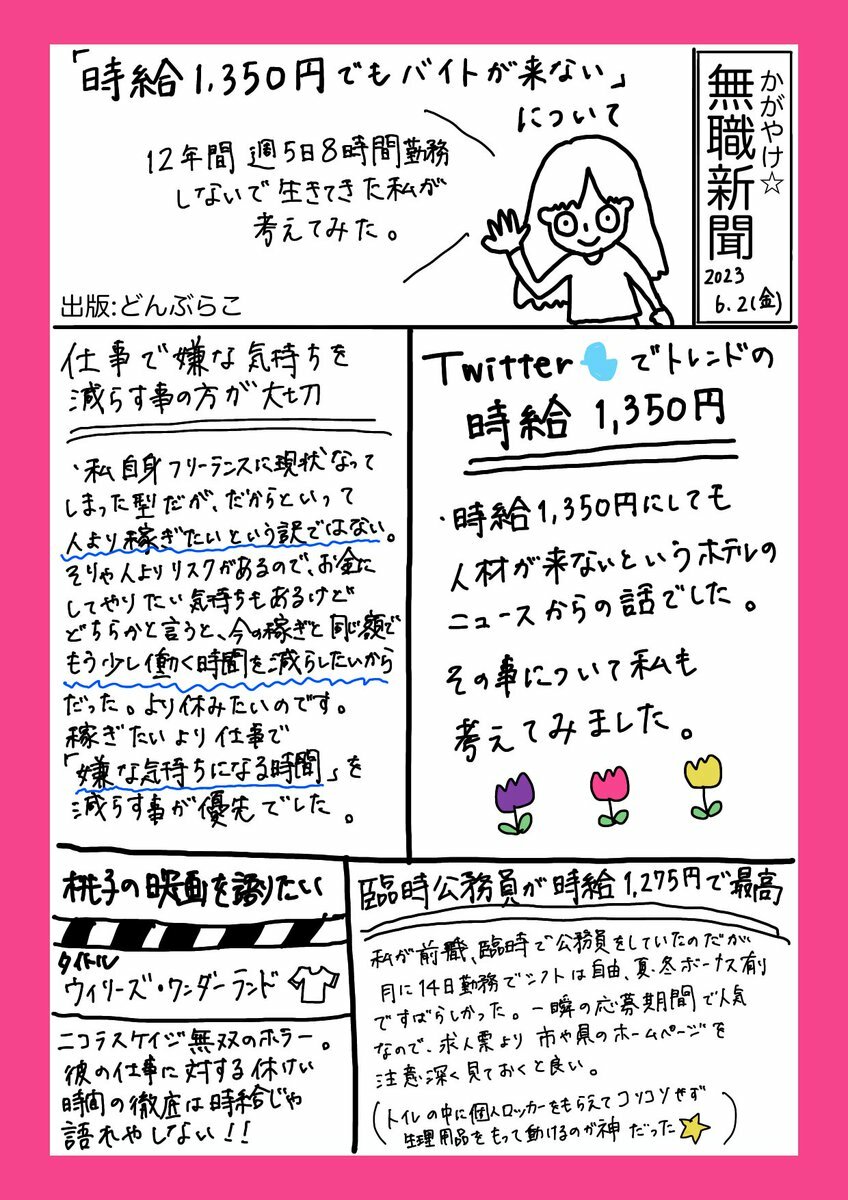 かがやけ☆
無職新聞
2023
6.2(金)
「時給1,350円でもバイトが来ない」
について
12年間週5日8時間勤務
しないで生きてきた私が
考えてみた。
出版:どんぶらこ
Twitterでトレンドの
時給1,350円
・時給1,350円にしても
人材が来ないというホテルの
ニュースからの話でした。
その事について私も
考えてみました。
仕事で嫌な気持ちを
減らす事の方が大切
・私自身フリーランスに現状なって
しまった型だが、だからといって
人より稼ぎたいという訳ではない。
そりゃ人よりリスクがあるので、お金に
してやりたい気持ちもあるけど
どちらかと言うと、今の稼ぎと同じ額で
もう少し働く時間を減らしたいから
だった。より休みたいのです。
稼ぎたいより仕事で
「嫌な気持ちになる時間」を
減らす事が優先でした。
臨時公務員が時給1,275円で最高
私が前職、臨時で公務員をしていたのだが
月に14日勤務でシフトは自由、夏・冬ボーナス有り
ですばらしかった。一瞬の応募期間で人気
なので、求人票より市や県のホームページを
注意深く見ておくと良い。
(トイレの中に個人ロッカーをもらえてコソコソせず
生理用品をもって動けるのが神だった)
桃子の映画を語りたい
タイトル
ウィリーズ・ワンダーランド
ニコラスケイジ無双のホラー。
彼の仕事に対する休けい
時間の徹底は時給じゃ
語れやしない!!